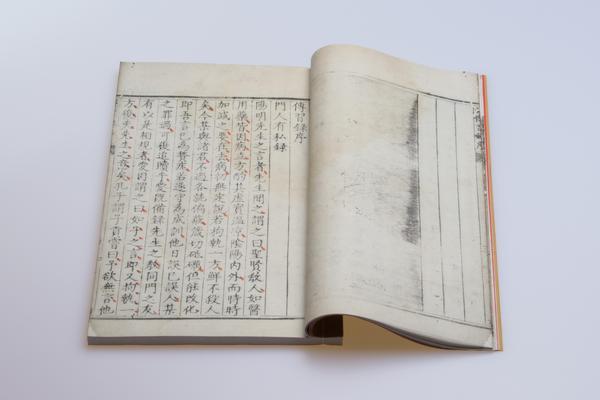 傳習錄序
門人有私錄
陽明先生之言者先生聞之謂之曰聖賢教人如醫
用藥皆因病立方酌其虛實溫涼陰陽內外而時時
加減之要在去病初無定說若拘執一方鮮不殺人
矣今某與諸君不過各就偏蔽箴切砥礪但能改化
即吾言已為贅疣若遂守為成訓他日誤己誤人某
之罪過可復追贖乎愛既備錄先生之教同門之友
有以是相規者愛因謂之曰如子之言即又拘執一
方復失先生之意矣孔子謂子貢嘗曰予欲無言他